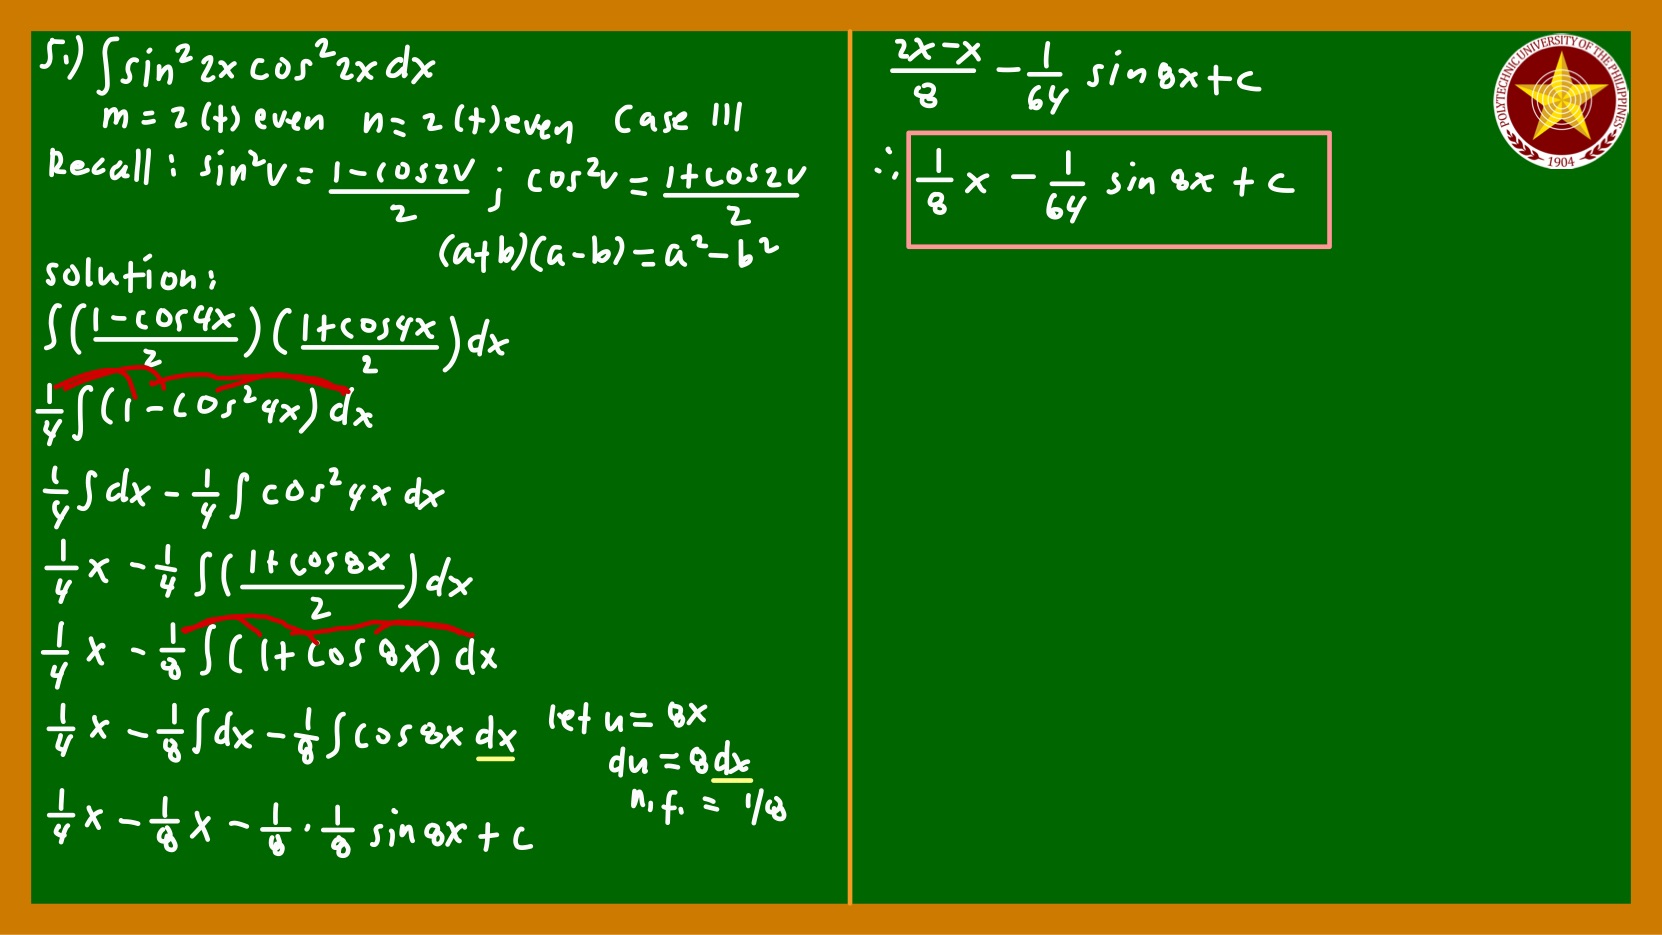 5.) ∫sin²2x cos²2x dx
m = 2 (+) even n = 2 (+) even Case III
Recall: sin²v = (1-cos2v)/2 ; cos²v = (1+cos2v)/2
(a+b)(a-b) = a²-b²
solution:
∫((1-cos4x)/2)((1+cos4x)/2)dx
1/4 ∫(1-cos²4x)dx
1/4 ∫dx - 1/4 ∫cos²4x dx
1/4 x - 1/4 ∫((1+cos8x)/2)dx
1/4 x - 1/8 ∫(1+cos8x)dx
1/4 x - 1/8 ∫dx - 1/8 ∫cos8x dx
let u = 8x
du = 8dx
n.f. = 1/8
1/4 x - 1/8 x - 1/8 · 1/8 sin8x + c
(2x-x)/8 - 1/64 sin8x + c
∴ 1/8 x - 1/64 sin8x + c
POLYTECHNIC UNIVERSITY OF THE PHILIPPINES
1904